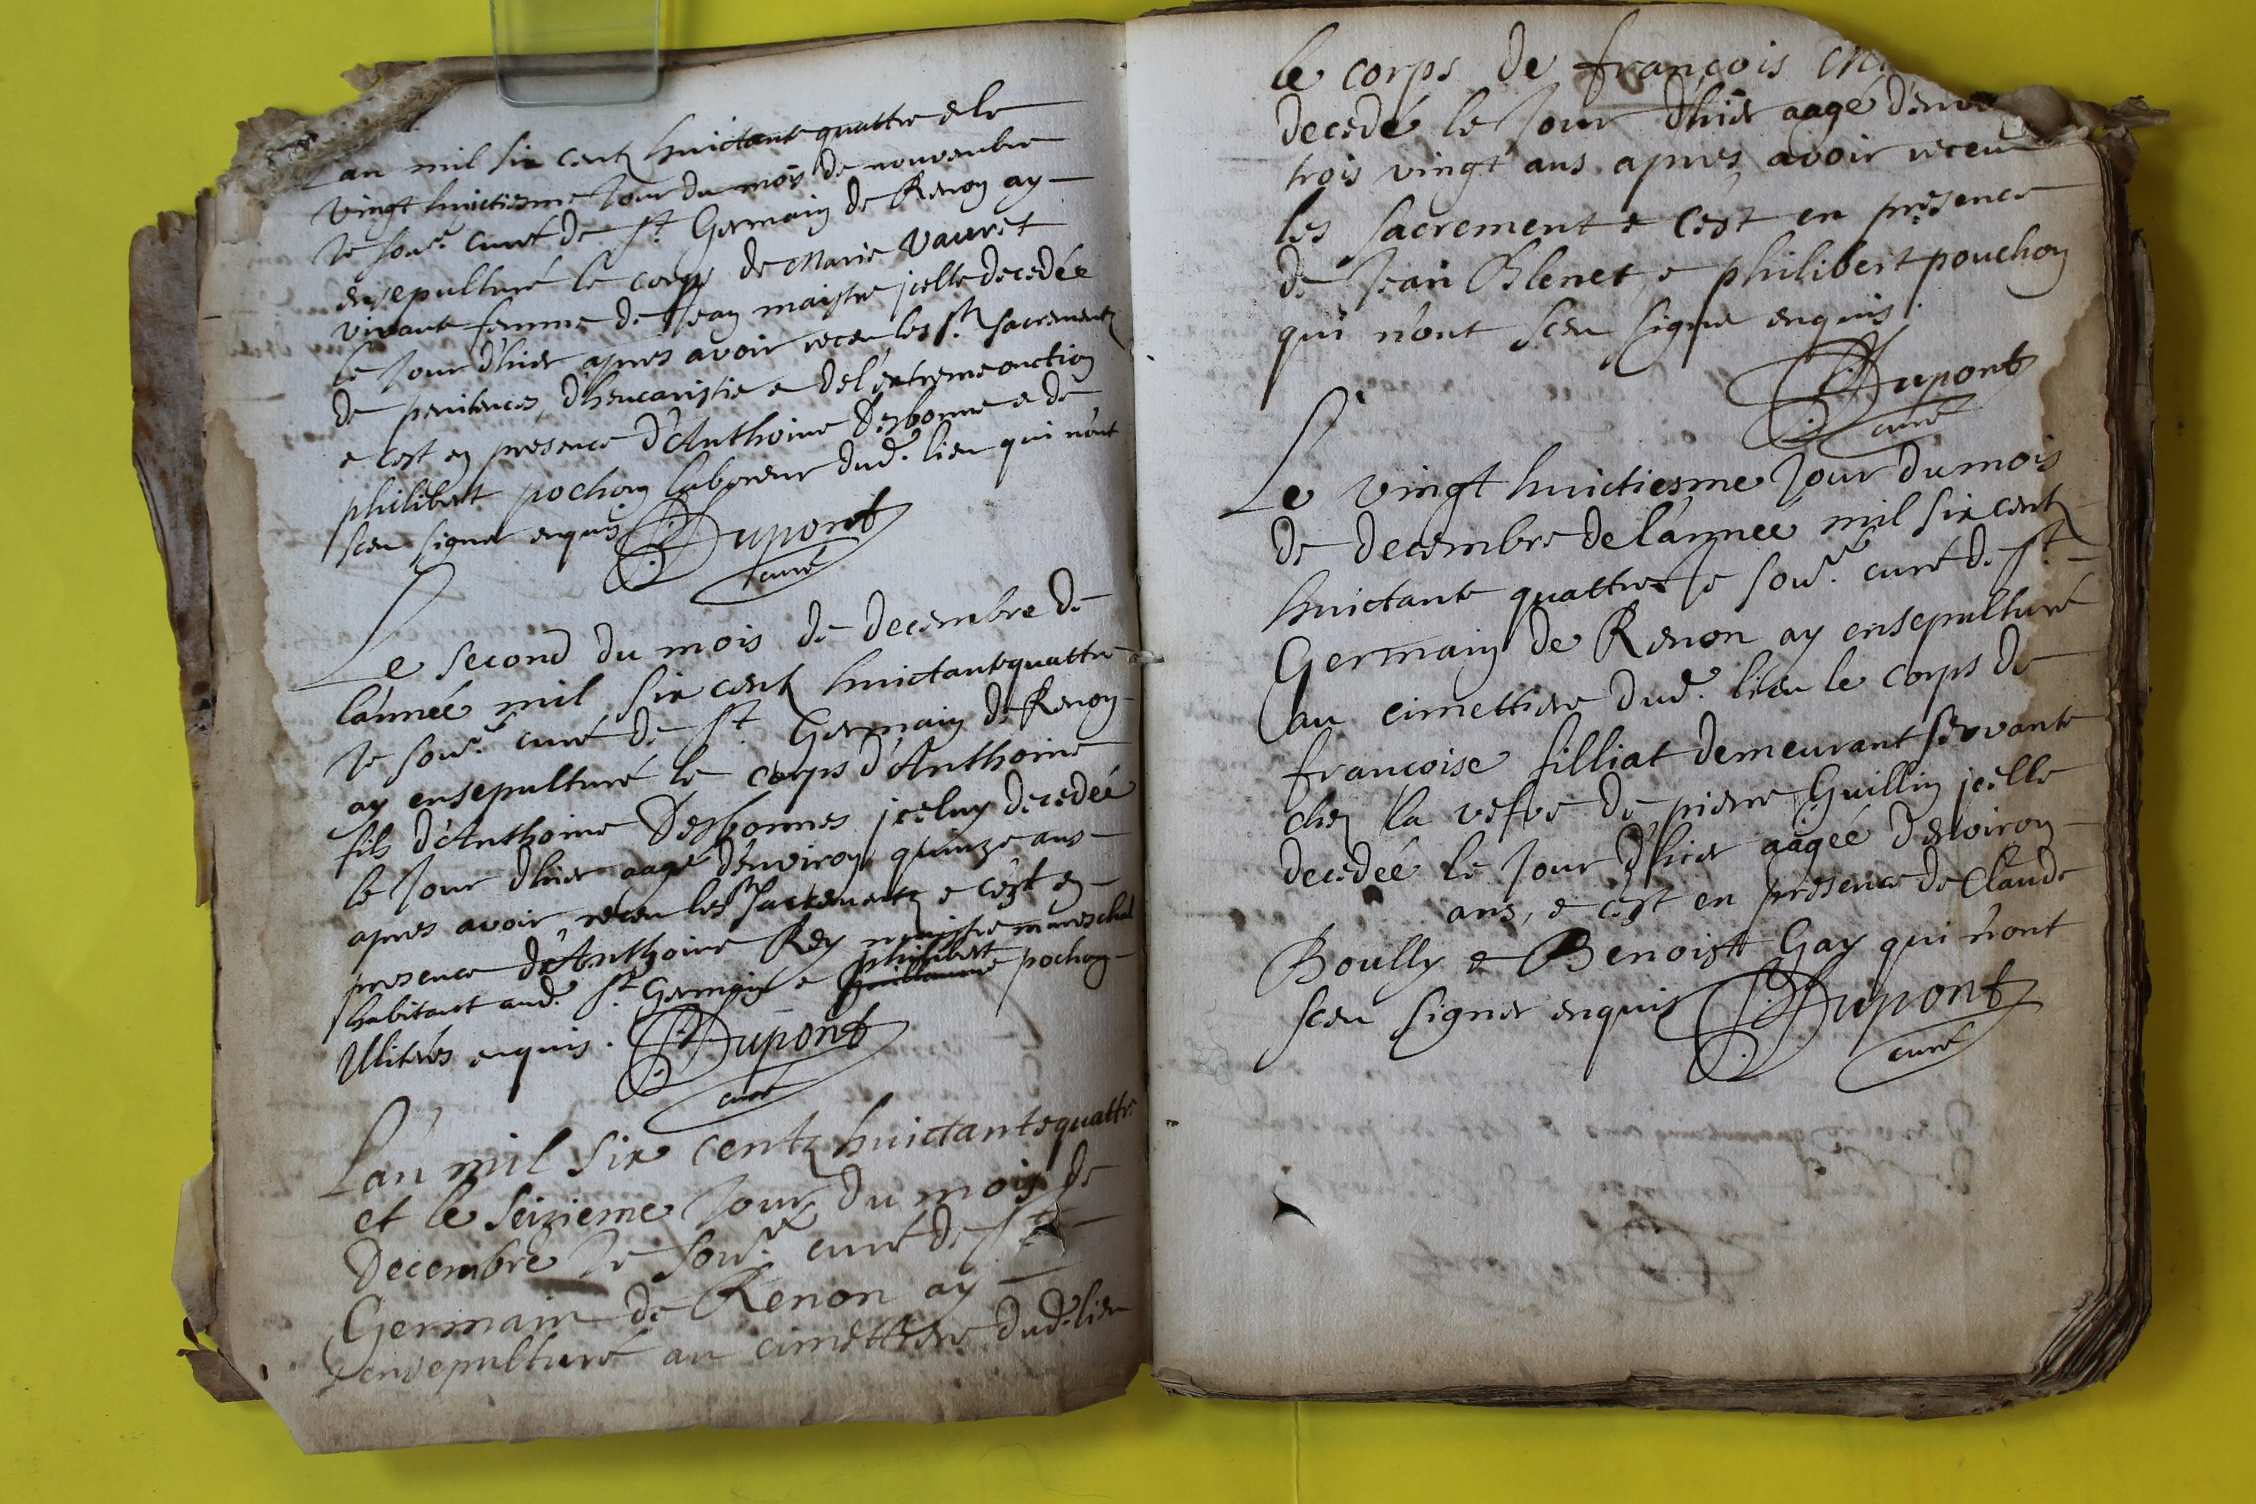 L'an mil six centz huictante quattre e le
vingt huictiesme Jour du mois de nouvembre
Je sous.é curé de S.t Germain de Renon ay
ensepulturé le corps de Marie Vauret
vivante femme de Jean maistre jcelle decedée
le Jour d'hier apres avoir receu les s.ts sacrementz
de penitences, d'heucaristie e del'extremeonction
e c'est en presence d'Anthoine Desbonne e de
philibert pochon laboreur dud.t lieu qui n'ont
sceu signer enquis Dupont
curé
Le second du mois de decembre de
l'année mil six centz huictante quattre
Je sous.é curé de S.t Germain de Renon
ay ensepulturé le corps d'Anthoine
fils d'Anthoine Desbonnes jceluy decedée
le Jour d'hier aagé d'environ quinze ans
apres avoir receu les s.ts sacrementz e c'est en
presence d'Anthoine Rey maistre mareschal
habitant aud.t S.t Germain e philibert pochon
Illiterés enquis. Dupont
curé
L'an mil six centz huictante quattre
et le seizieme Jour du mois de
Decembre Je sous.é curé de S.t
Germain de Renon ay
ensepulturé au cimettiere dud.t lieu
le corps de françois
decedé le Jour d'hier aagé
trois vingt ans apres avoir receu
les sacrement e c'est en presence
de Jean Blenet e philibert pouchon
qui n'ont sceu signer enquis.
Dupont
curé
Le vingt huictiesme Jour du mois
de decembre de l'année mil six centz
huictante quattre Je sous.é curé de S.t
Germain de Renon ay ensepulturé
au cimettiere dud.t lieu le corps de
françoise filliat demeurant servante
chez la vefve de pierre Guillin jcelle
decedeé le Jour d'hier aageé d'environ
ans, e c'est en presence de Claude
Boully e Benoist Gay qui n'ont
sceu signer enquis Dupont
curé